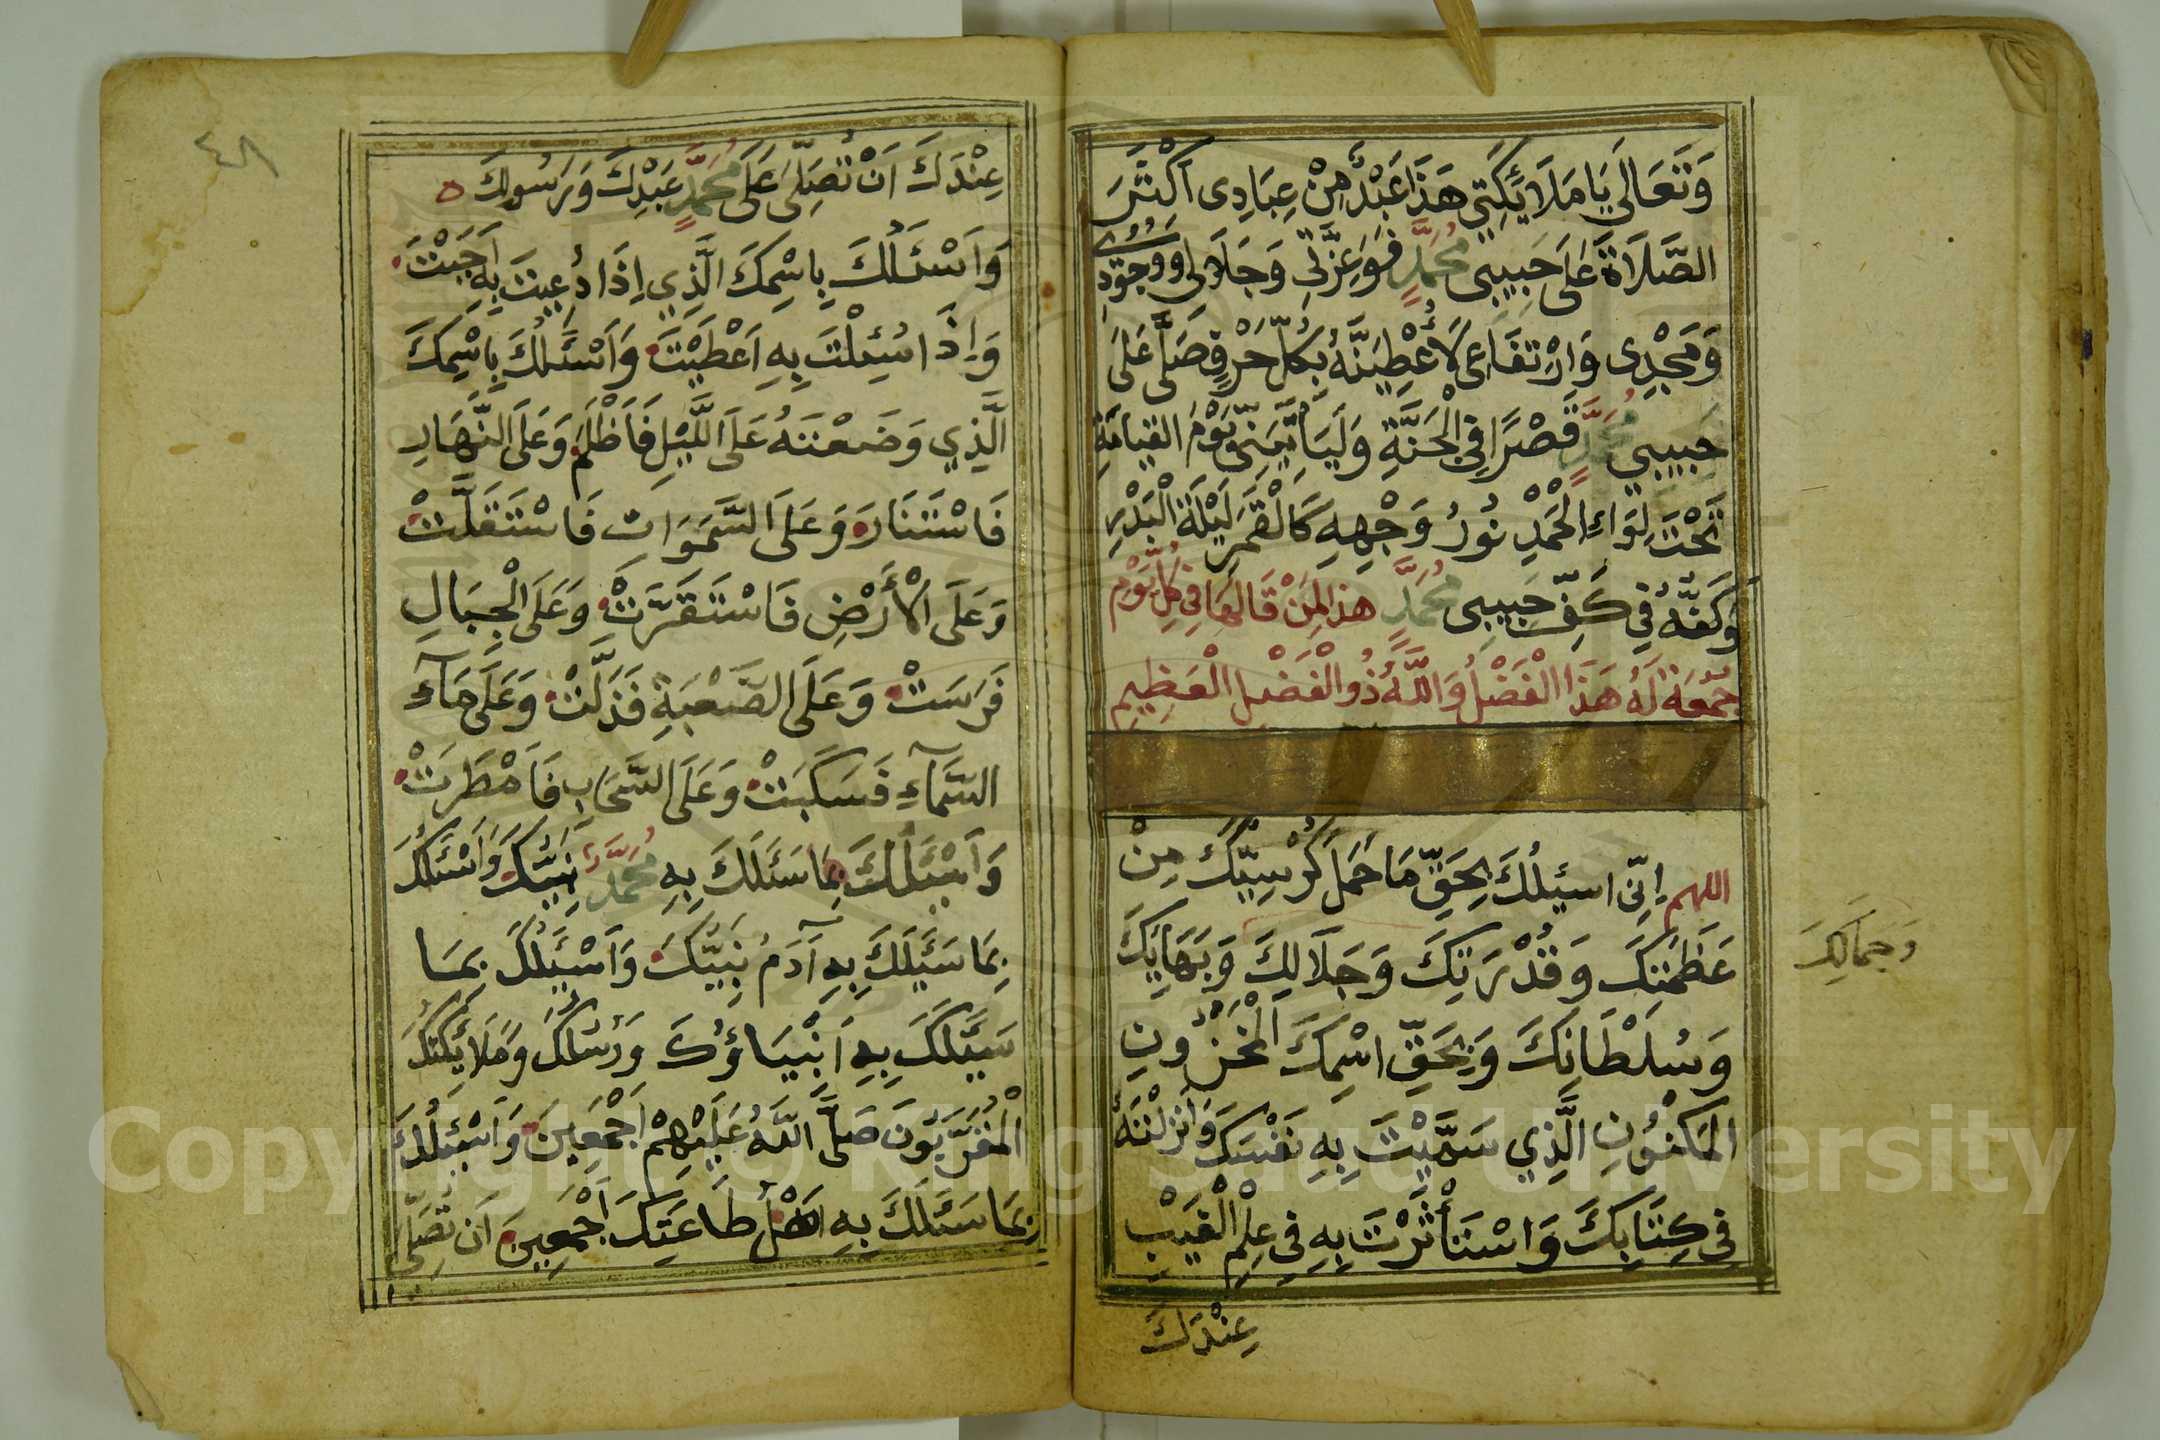 وَتَعَالَى يَا مَلَائِكَتِي هَذَا عَبْدٌ مِنْ عِبَادِى اَكْثَرَ
الصَّلَاةَ عَلَى حَبِيبِى مُحَمَّدٍ فَوَعِزَّتِي وَجَلَالِى وَجُودِى
وَمَجْدِى وَارْتِفَاعِى لَأُعْطِيَنَّهُ بِكُلِّ حَرْفٍ صَلَّى عَلَى
حَبِيبِي مُحَمَّدٍ قَصْرًا فِى الْجَنَّةِ وَلَيَأْتِيَنِّى يَوْمَ الْقِيَامَةِ
تَحْتَ لِوَاءِ الْحَمْدِ نُورُ وَجْهِهِ كَالْقَمَرِ لَيْلَةَ الْبَدْرِ
وَكَفُّهُ فِي كَفِّ حَبِيبِى مُحَمَّدٍ هذا لِمَنْ قَالَهَا فِى كُلِّ يَوْمِ
جُمُعَةٍ لَهُ هَذَا الْفَضْلُ وَاللَّهُ ذُو الْفَضْلِ الْعَظِيمِ
اللهم اِنِّى اسئلُكَ بِحَقِّ مَا حَمَلَ كُرْسِيُّكَ مِنْ
عَظَمَتِكَ وَقُدْرَتِكَ وَجَلَالِكَ وَبَهَائِكَ
وَجَمَالِكَ
وَسُلْطَانِكَ وَبِحَقِّ اسْمِكَ الْمَخْزُونِ
الْمَكْنُونِ الَّذِي سَمَّيْتَ بِهِ نَفْسَكَ وَاَنْزَلْتَهُ
فِى كِتَابِكَ وَاسْتَأْثَرْتَ بِهِ فِى عِلْمِ الْغَيْبِ
عِنْدَكَ
٤٨
عِنْدَكَ اَنْ تُصَلِّىَ عَلَى مُحَمَّدٍ عَبْدِكَ وَرَسُولِكَ
وَاَسْئَلُكَ بِاسْمِكَ الَّذِي اِذَا دُعِيتَ بِهِ اَجَبْتَ
وَاِذَا سُئِلْتَ بِهِ اَعْطَيْتَ وَاَسْئَلُكَ بِاسْمِكَ
الَّذِي وَضَعْتَهُ عَلَى اللَّيْلِ فَاَظْلَمَ وَعَلَى النَّهَارِ
فَاسْتَنَارَ وَعَلَى السَّمَوَاتِ فَاسْتَقَلَّتْ
وَعَلَى الْأَرْضِ فَاسْتَقَرَّتْ وَعَلَى الْجِبَالِ
فَرَسَتْ وَعَلَى الصَّعْبَةِ فَذَلَّتْ وَعَلَى مَآءِ
السَّمَآءِ فَسَكَبَتْ وَعَلَى السَّحَابِ فَاَمْطَرَتْ
وَاَسْئَلُكَ بِمَا سَئَلَكَ بِهِ مُحَمَّدٌ نَبِيُّكَ وَاَسْئَلُكَ
بِمَا سَئَلَكَ بِهِ آدَمُ نَبِيُّكَ وَاَسْئَلُكَ بِمَا
سَئَلَكَ بِهِ اَنْبِيَاؤُكَ وَرُسُلُكَ وَمَلَائِكَتُكَ
الْمُقَرَّبُونَ صَلَّى اللَّهُ عَلَيْهِمْ اَجْمَعِينَ وَاَسْئَلُكَ
بِمَا سَئَلَكَ بِهِ اَهْلُ طَاعَتِكَ اَجْمَعِينَ اَنْ تُصَلِّىَ
Copyright © King Saud University